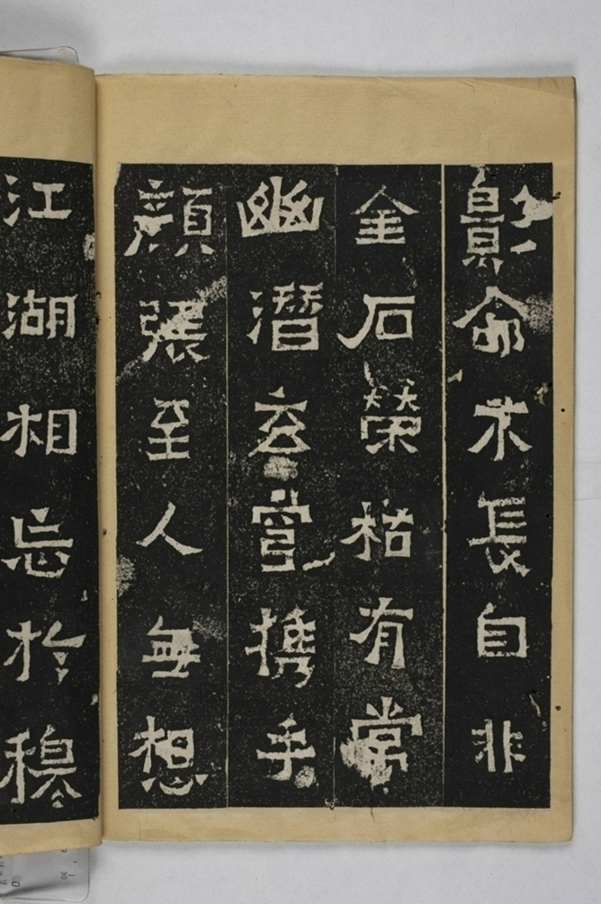 影命不長自非
金石榮枯有常
幽潛玄宮携手
顏張至人無想
江湖相忘扵穆